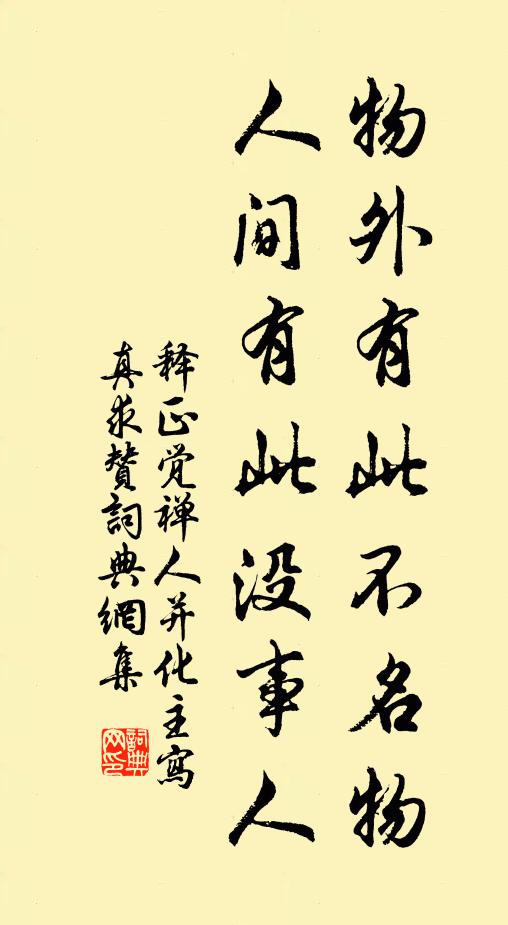 物外有此不名物
人间有此没事人
释正觉禅人并化主寫
真求赞詞典網集
詞典网印